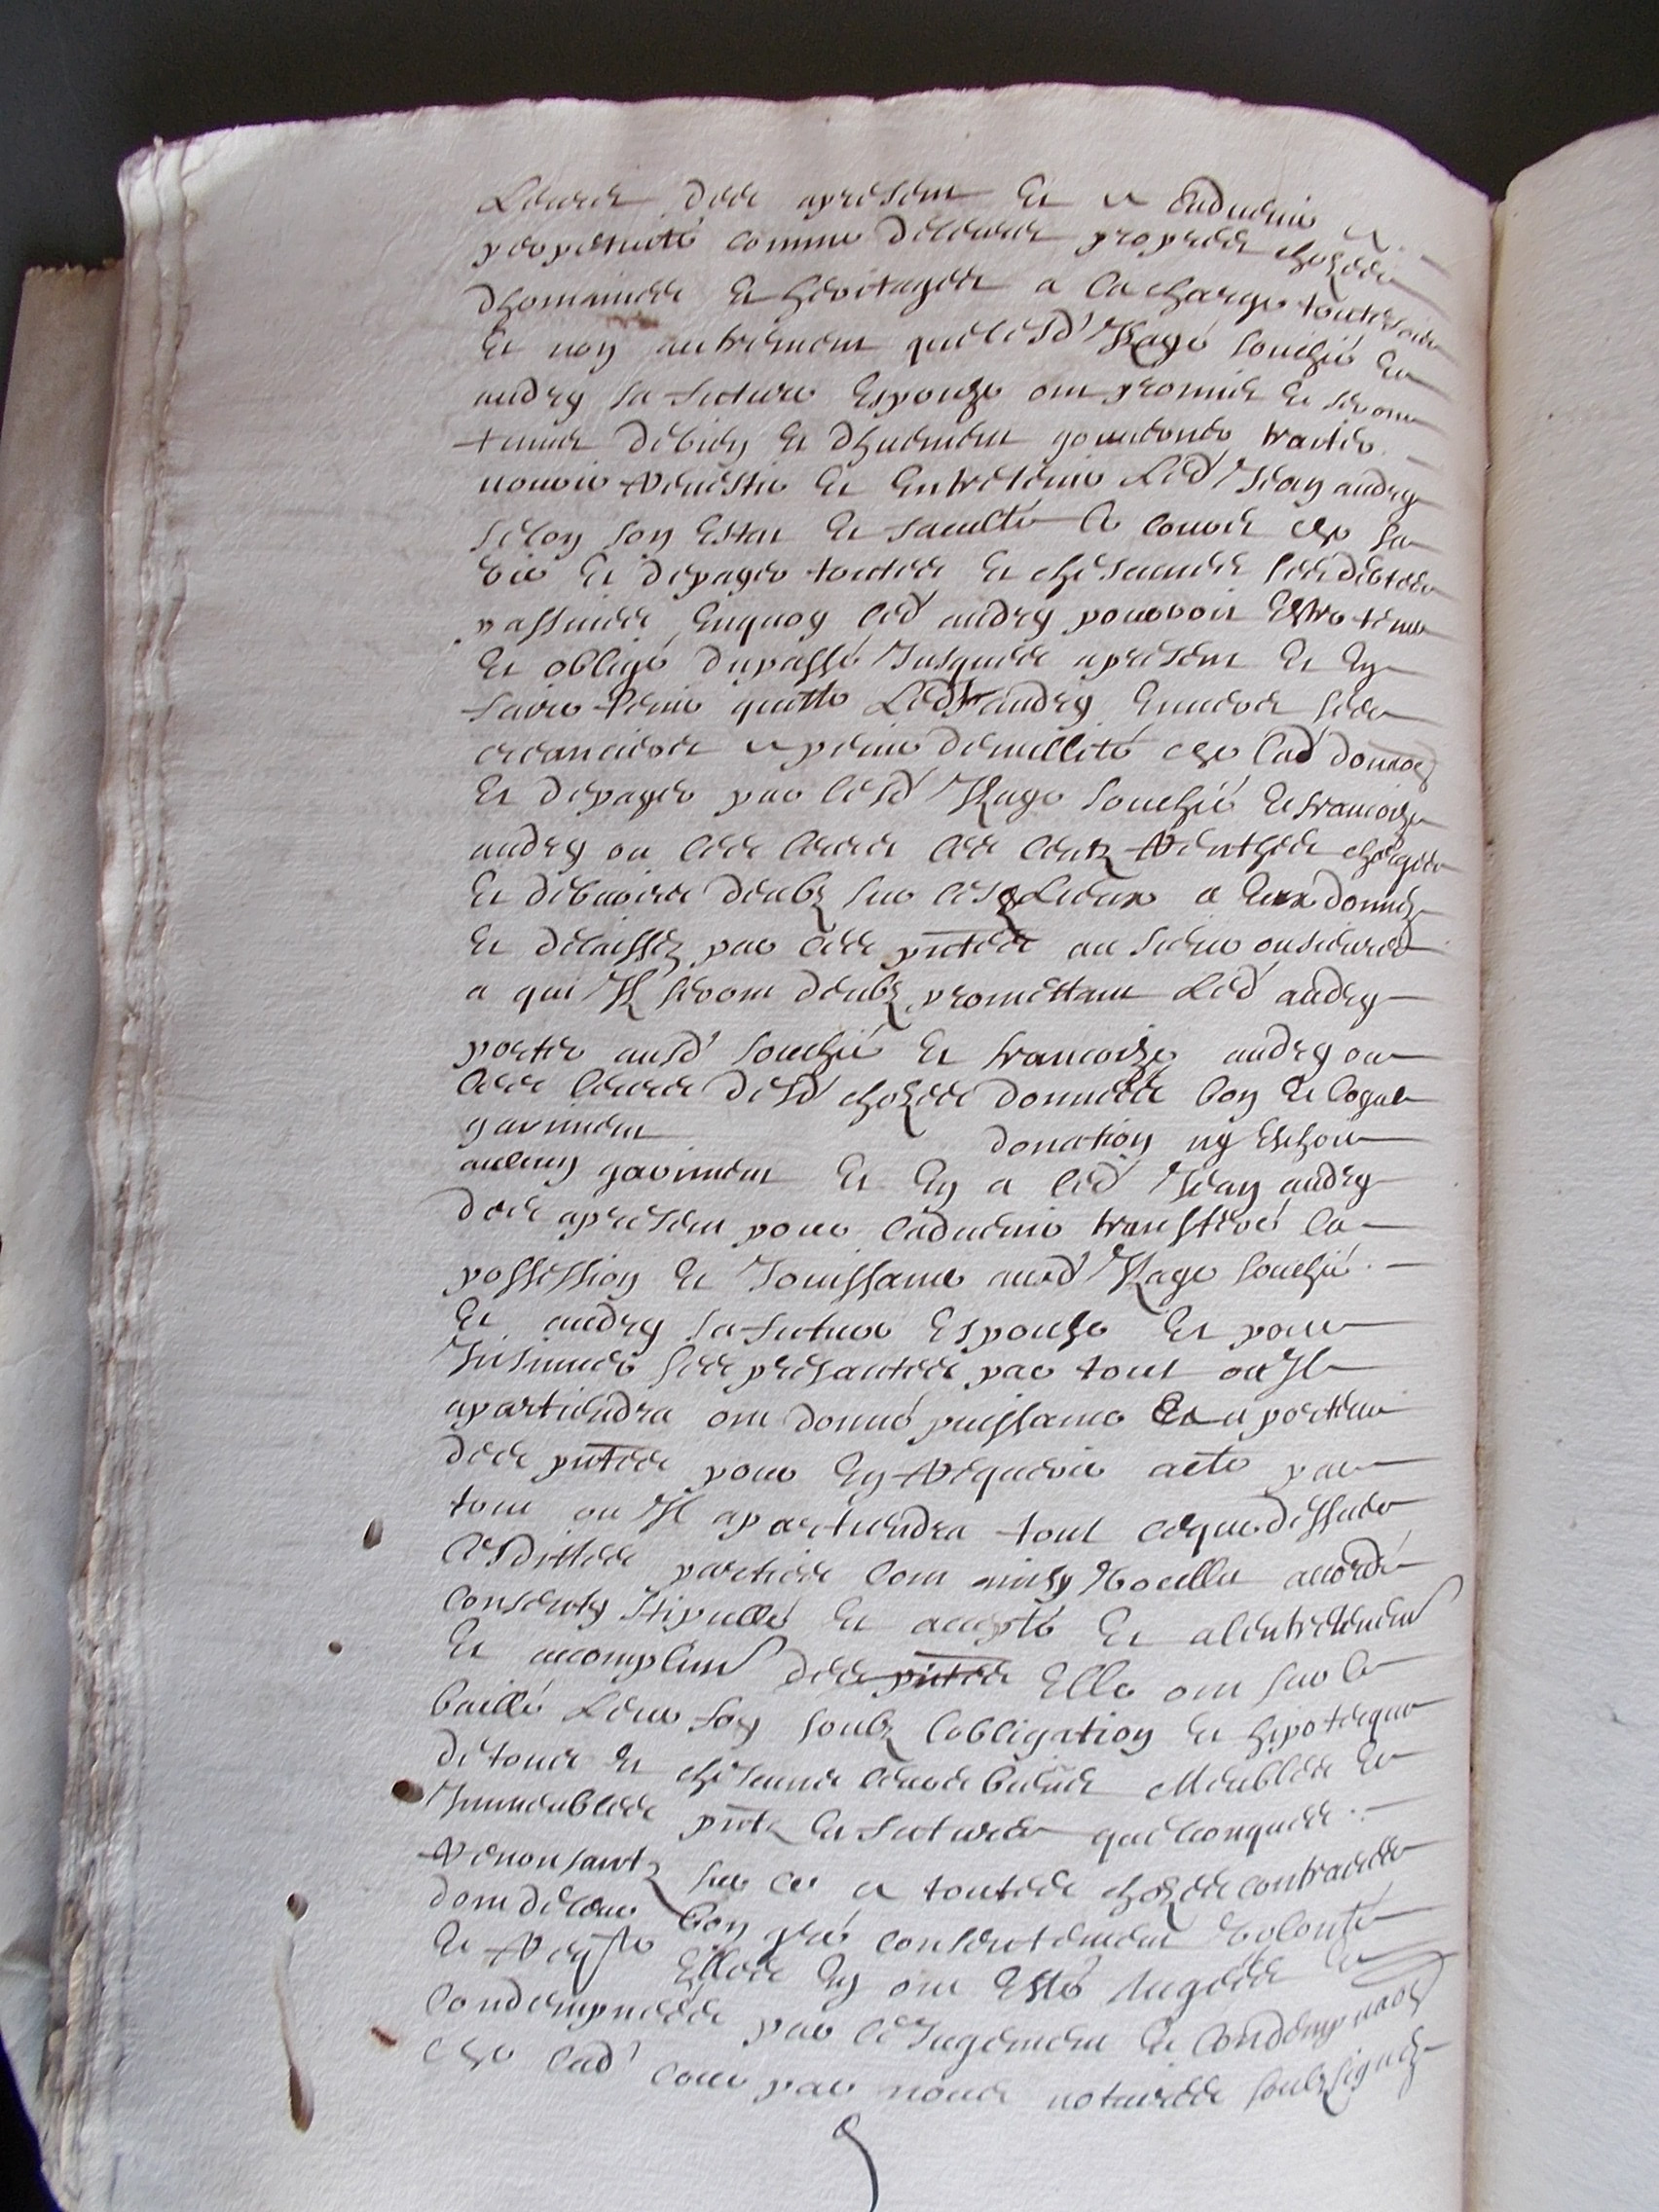 Leurs des apresent et a ladvenir a
perpetuité comme de leurs propres chozes
dhomaines et heritages a la charge toutesfois
et non autrement que lesd' Hugo Souchié et
andry sa future espouze ont promis et seront
tenus de bien et dhuement gouverner traiter
nourir Revestir et entretenir Led' Jean andry
selon son estat et faculté le cours de sa
vie et de payer toutes et chescunes ses debtes
passives enquoy led' andry pouroit estre tenu
et obligé du passé Jusques apresent et en
faire tenir quitte Led' andry envers ses
creanciers a peine de nullité de lad' donaon
et de payer par lesd' Hugo Souchié et francoize
andry ou les leurs les cents Renthes charges
et debvoirs deubz sur lesd' Lieux a eux donnez
et delaissez par ces pntes au sieur ou sieurs
a qui Ilz seront deubz promettant Led' andry
porter ausd' Souchié et francoize andry ou
les leurs desd' chozes donnees bon et loyal
gariment donation ny eschoit
aulcun gariment et en a led' Jean andry
des apresent pour ladvenir transferé la
possession et Jouissance ausd' Hugo Souchié
et andry sa future espouze et pour
Insinuer ses presantes par tout ou Il
apartiendra ont donné puissance au porteur
des pntes pour en Requerir acte par
tout ou Il apartiendra tout ce que dessus
lesdittes parties lont ainsy Voullu accordé
consenty stipullé et accepté et a lentretenemt
et accomplimt des pntes elle ont sur ce
baillé Leur foy soubz lobligation et hipoteque
de tous et chescuns leurs biens Meubles et
Immeubles pntz et futurs quelconques
Renonsantz sur ce a toutes chozes contraires
dont de leur bon gré consentement volonté
et Reqste elles en ont esté Jugees et
condempnees par le Jugement et condempnaon
de lad' cour par nous notaires soubzsignez